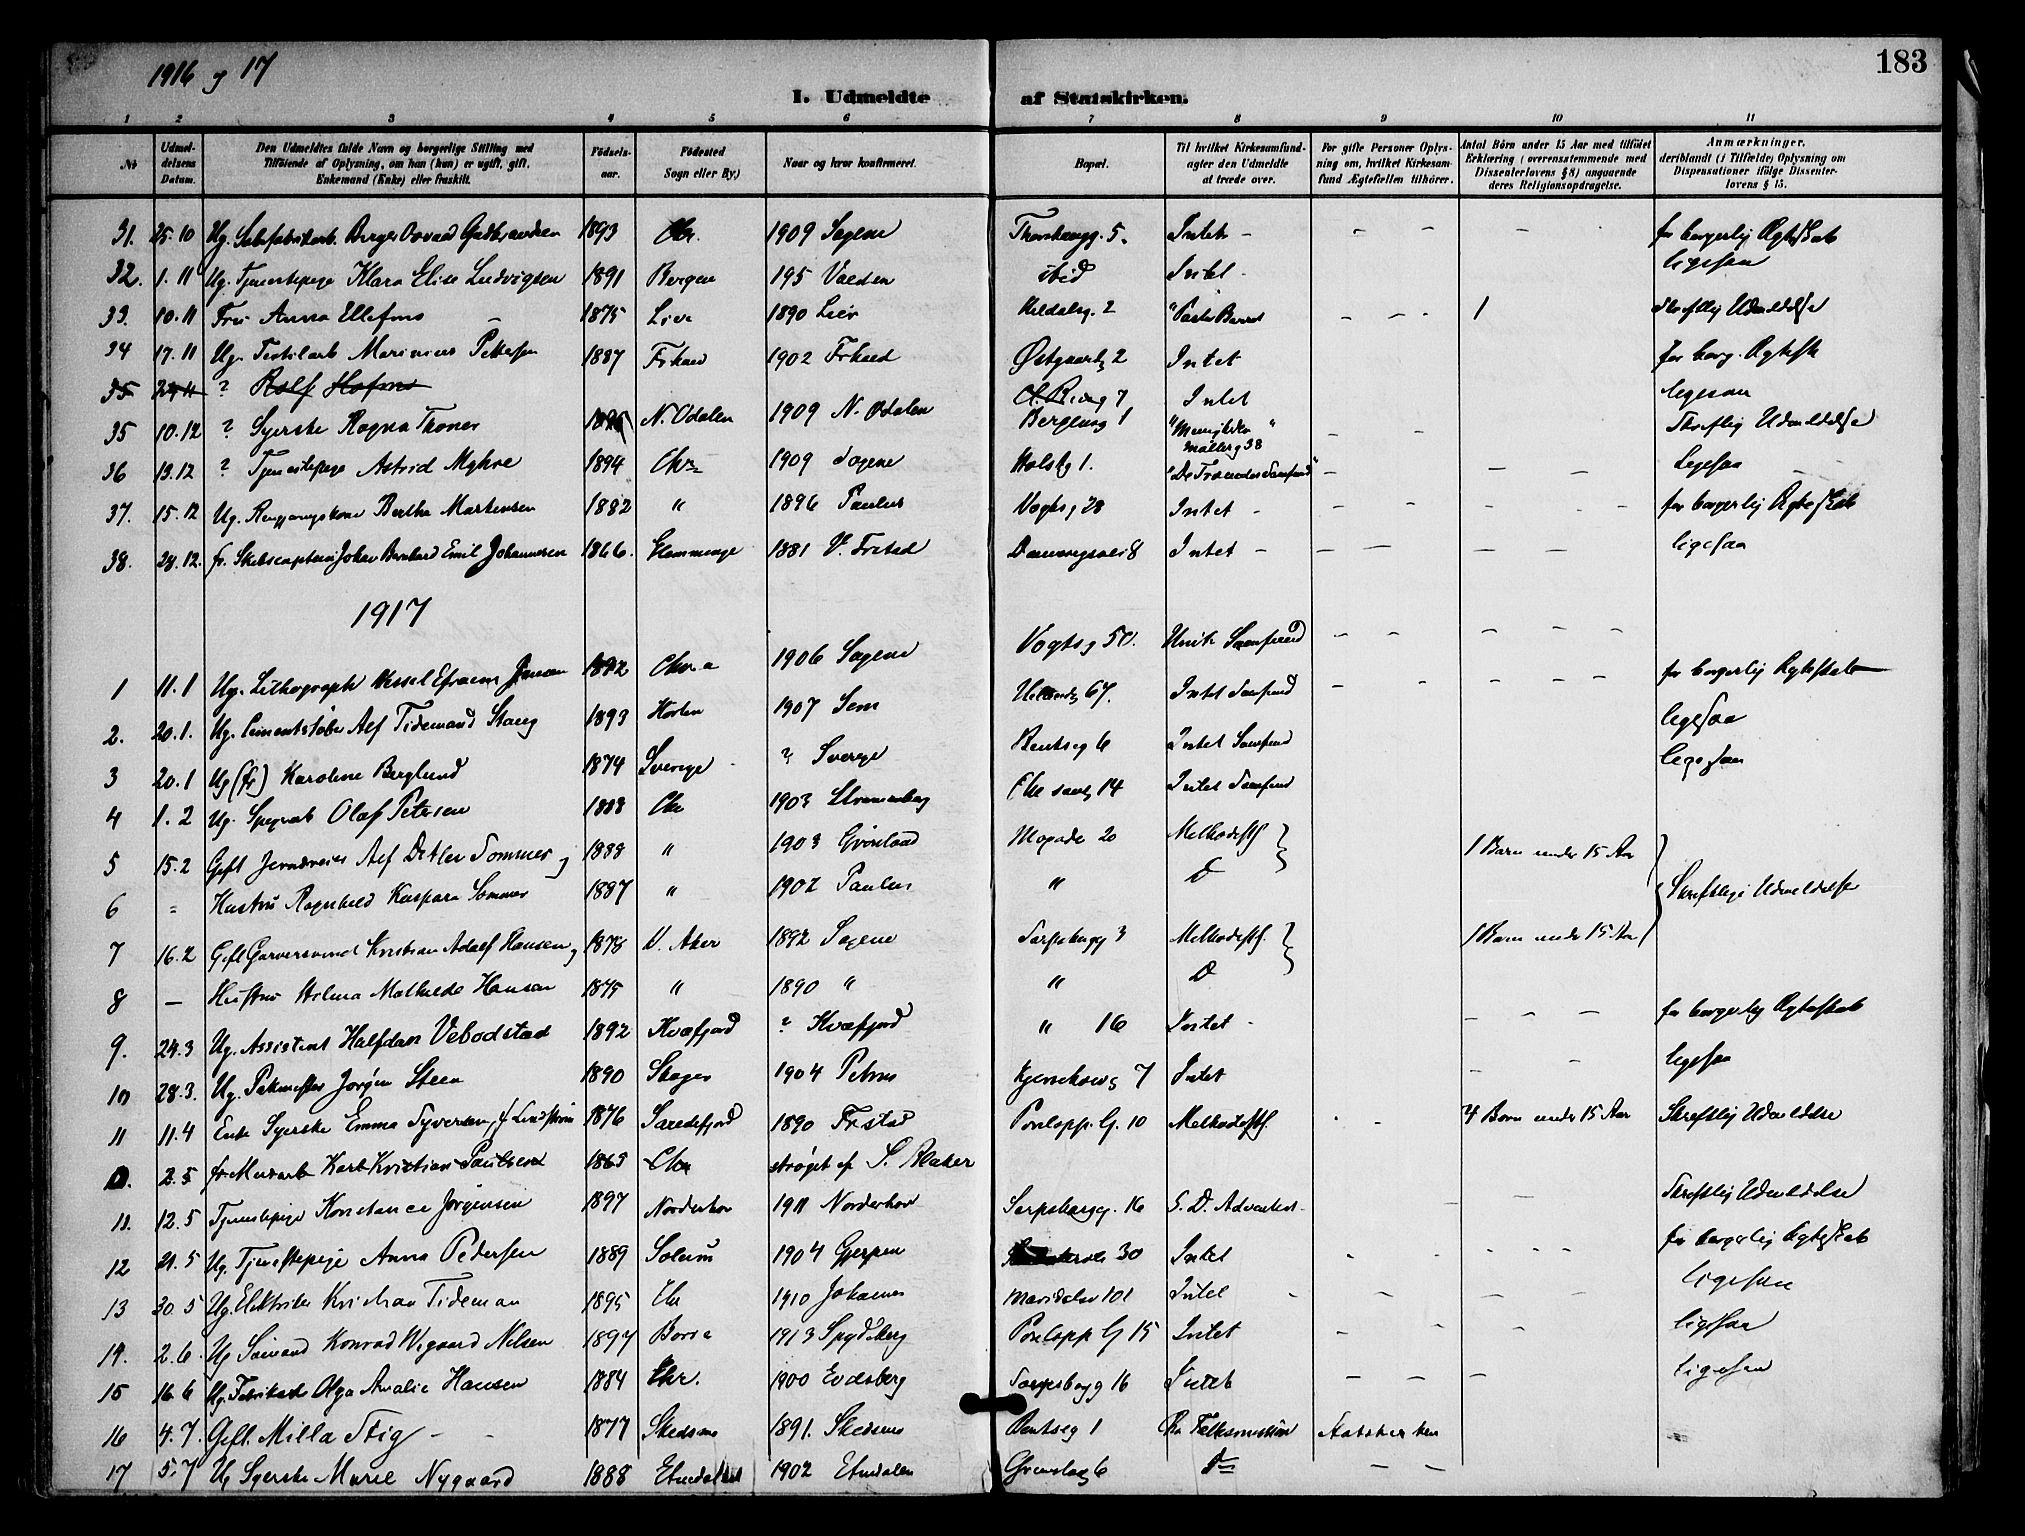 1916 og 17
183
I. Udmeldte af Statskirken.
1 2 3 4 5 6 7 8 9 10 11
No
Udmeldelsens Datum.
Den Udmeldtes fulde Navn og borgerlige Stilling med Tilføiende af Oplysning, om han (hun) er ugift, gift, Enkemand (Enke) eller fraskilt.
Fødselsaar.
Fødested Sogn eller By.)
Naar og hvor konfirmeret.
Bopæl.
Til hvilket Kirkesamfund agter den Udmeldte at træde over.
For gifte Personer Oplysning om, hvilket Kirkesamfund Ægtefællen tilhører.
Antal Börn under 15 Aar med tilföiet Erklæring (overensstemmende med Dissenterlovens § 8) angaaende deres Religionsopdragelse.
Anmærkninger, deriblandt (i Tilfælde) Oplysning om Dispensationer ifölge Dissenterlovens § 15.
31. 25.10 Ug. Birger Osvald Gulbrandsen 1893 Chr. 1909 Sagene 5. Intet - - - - for borgerlig Ægteskab
32. 1.11 Ug. Tjenestepige Klara Elise Ludvigsen 1891 Bergen 195 ibid Intet - ligesaa
33. 10.11 Fru Anna Ellefsen 1875 Lier 1890 Lier 2 - - - 1 Skriftlig Udmeldelse
34 17.11 Ug. Marinius Pettersen 1887 Frstad 1902 Frstad Østgaardsg 2 Intet for borg. Ægtesk
35 ? Rolf Hofmo 7 Intet ligesaa
35 10.12 ? Syerske Ragna Thoner N. Odalen 1909 N. Odalen Berglung 1 "Menigheden Møllerg 38" - - Skriftlig Udmeldelse
36 13.12 ? Tjenestepige Astrid Myhre 1894 Chr 1909 Sagene Holstg 1. "De Troendes Samfund" - - - Ligesaa -
37. 15.12 Ug. Rengjøringskone Berthe Martensen 1882 " 1896 Paulus Vogtsg 28 Intet - - - - - - for borgerlig Ægteskab
38. 28.12. fr. Skibscaptein Johan Bernhard Emil Johannesen 1866. Glemminge 1881 V. Frstad 8 Intet - - - - - ligesaa
1917
1 11.1 Ug. Lithograph Wessel Efraim Jensen 1892 Chr.a 1906 Sagene Vogtsg 50. Unit. Samfund - - - - -
2. 20.1. Ug. Cementstøber Alf Tidemand Stang 1893 Horten 1907 Sem 67. Intet Samfund - - - - - for borgerlig Ægteskab
3 20.1 Ug (fr) Karoline Berglund 1874 Sverige ? Sverige Bentseg 6 Intet Samfund ligesaa
4 1.2 Ug. Olaf Petersen 1888 Chr 1903 14 Intet Samfund ligesaa
5 15.2 Gift Jerndreier Alf Detlev Sommer og 1888 " 1903 Grønland 20 Methodistk. 1 Barn under 15 Aar
6 = Hustru Ragnhild Kaspara Sommer 1887 " 1902 Paulus " D Skriftlige Udmeldelse
7 16.2 Gift Garversvend Kristian Adolf Hansen og 1878 V. Aker 1892 Sagene Sarpsborgg 3 Methodistk. 1 Barn under 15 Aar
8 - Hustru Helma Mathilde Hansen 1875 " 1890 " " D
9. 24.3 Ug. Assistent Halfdan Vebostad 1892 Kvæfjord ? Kvæfjord " 16 Intet - - - - for borgerlig Ægteskab
10 28.3. Ug. Pakmester Jørgen Steen 1890 1904 Petrus 7 Intet - - ligesaa
11 11.4 Enke Syerske Emma Syversen, f. Lindstrøm 1876 Sandefjord 1890 Frstad 10 Methodistk. - - 4 Børn under 15 Aar Skriftlig Udmeldelse
2.5 fr. Murarb Karl Kristian Paulsen 1865 Chr strøget af S. Maker
11. 12.5 Tjenestepige Konstance Jørgensen 1897 Norderhov 1911 Norderhov Sarpsborgg. 16 S. D. Adventist. - - Skriftlig Udmeldelse
12 21.5 Ug. Tjenestepige Anna Pedersen 1889 Solum 1904 Gjerpen 30 Intet - - - - - for borgerlig Ægteskab
13 30.5 Ug. Elektriker Kristian Tideman 1895 Chr 1910 Johannes Maridalsv 101 Intet - - - - ligesaa
14. 2.6. Ug Sømand Konrad Wigaard Nilsen 1897 Borre 1913 Spydeberg 15 Intet - - - ligesaa
15 16.6 Ug. Fabrikarb Olga Amalie Hansen 1884 Chr. 1900 Eidsberg Sarpsborgg 16 Intet - - - ligesaa
16 4.7. Gift. Milla Stig - - 1877 Skedsmo 1891. Skedsmo Bentseg 1 Folkemission Statskirken
17 5.7 Ug Syerske Marie Nygaard 1888 Etnedalen 1902 Etnedalen 6 D - -